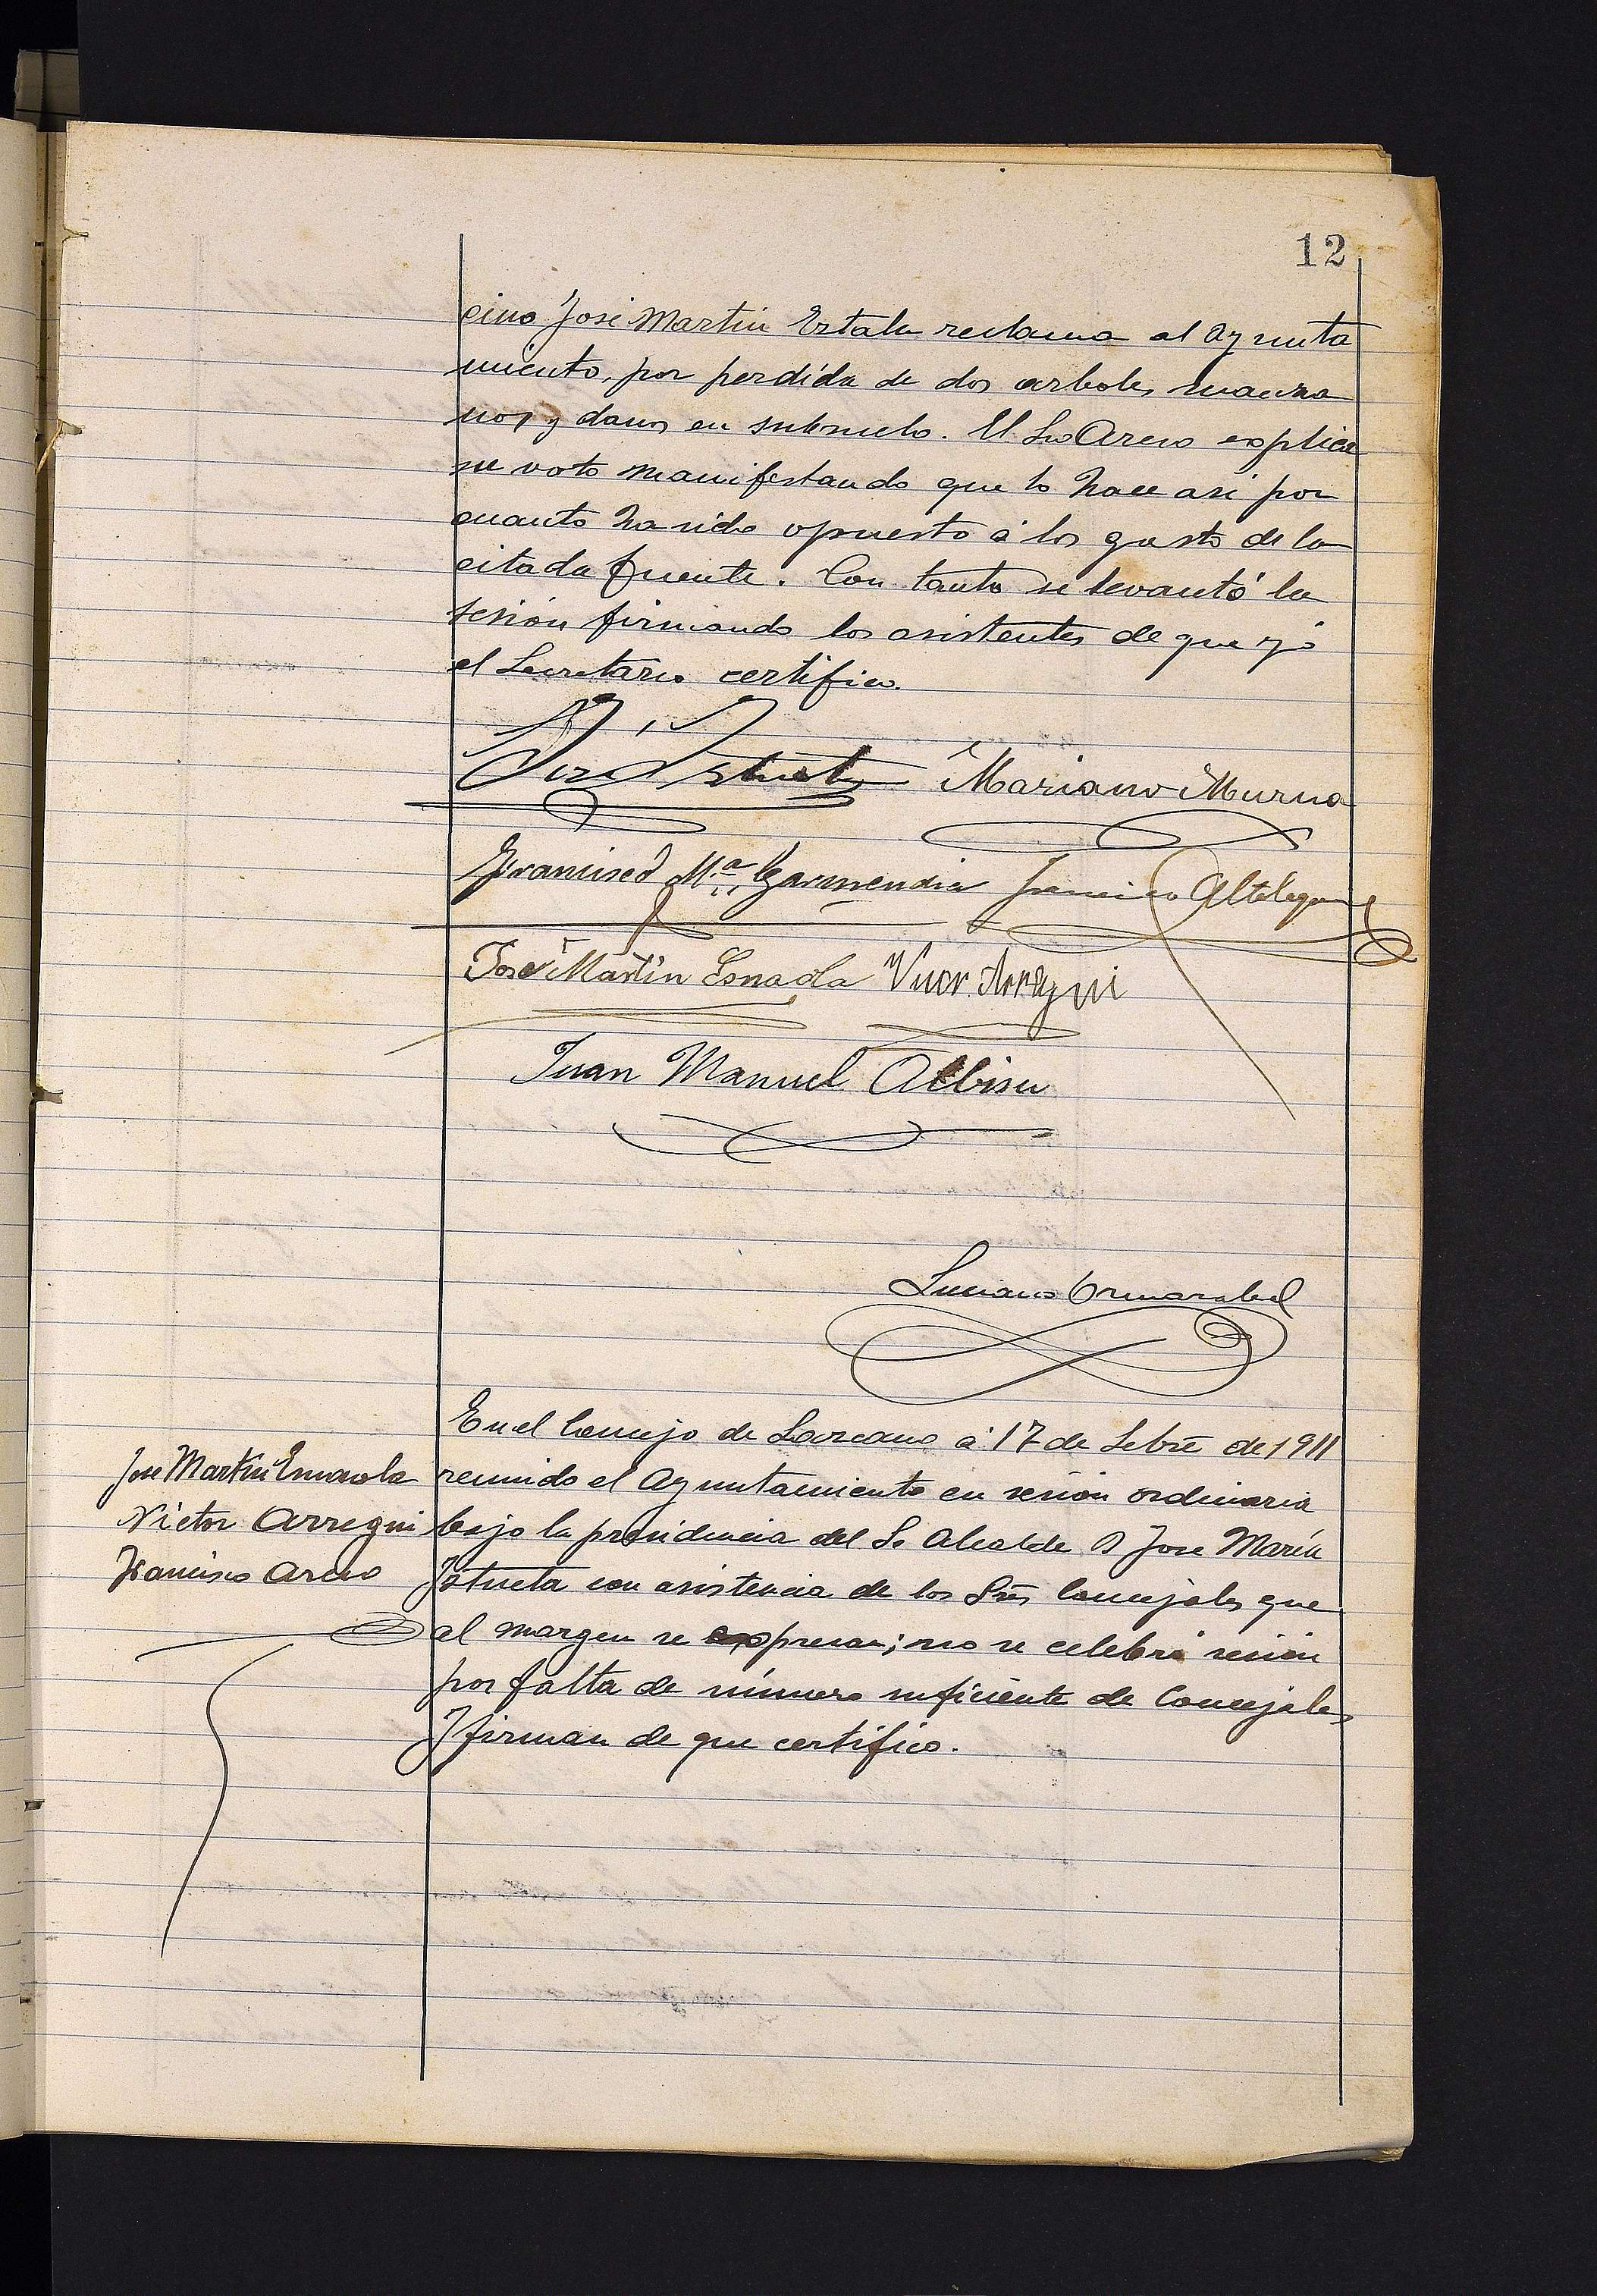 12
cino José Martin Ertala reclama al Ayunta
miento, por perdída de dos arboles manza
nos y danos en subsuelo. El Sr Areso explica
su voto manifestando que lo hace asi por
cuanto ha sido opuesto á los gasto de la
citada fuente. Con tanto se levantó la
sesión firmando los asistentes de que yó
el Secretario certifico.
José Istueta Mariano Murua
Francisco M.ª Garmendia Francisco Altolaguirre
José Martín Esnaola Victor Arregui
Juan Manuel Albisu
Luciano Ormazabal
En el Concejo de Lazcano á 17 de Sebre de 1911
Jose Martin Esnaola
reunido el Ayuntamiento en sesión ordinaria
Victor Arregui
bajo la presidencia del Sr Alcalde D Jose María
Francisco Areso
Istueta con asistencia de los Srēs Concejales que
al margen se expresan; no se celebró sesión
por falta de número suficiente de Concejales
y firman de que certífico.